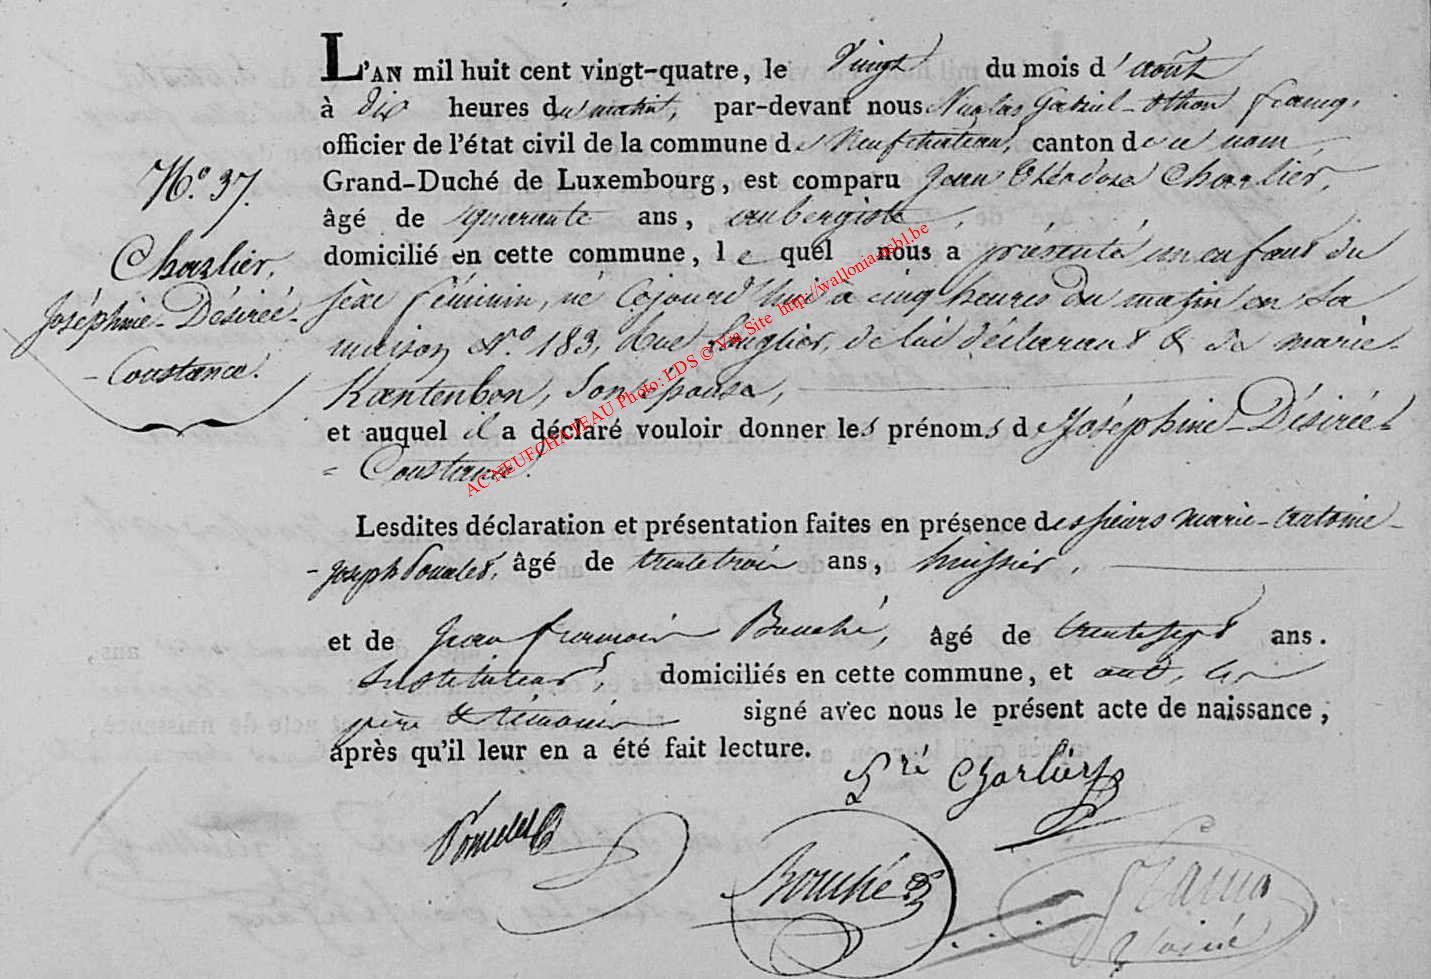 L'AN mil huit cent vingt-quatre, le vingt du mois d'août
à dix heures du matin, par-devant nous Nicolas Gabriel-Othon francq,
officier de l'état civil de la commune de Neufchateau, canton de ce nom,
Grand-Duché de Luxembourg, est comparu Jean Théodore Charlier,
âgé de quarante ans, aubergiste,
domicilié en cette commune, lequel nous a présenté un enfant du
sèxe féminin, né cejourd'hui à cinq heures du matin en sa
maison N.o 183, rue, de lui déclarant & de marie
Kantenbon, son épouse,
et auquel il a déclaré vouloir donner les prénoms de Joséphine-Désirée-
= Constance.
Lesdites déclaration et présentation faites en présence des sieurs marie-antoine-
-joseph, âgé de trente trois ans, huissier,
et de jean françois Bouché, âgé de trente sept ans.
Instituteur, domiciliés en cette commune, et ont, les
père & témoins signé avec nous le présent acte de naissance,
après qu'il leur en a été fait lecture.
N.o 37.
Charlier,
Joséphine-Désirée-
-Constance.
Charlier
Bouché
AC NEUFCHATEAU Photo: LDS © Via Site http://wallonia-asbl.be